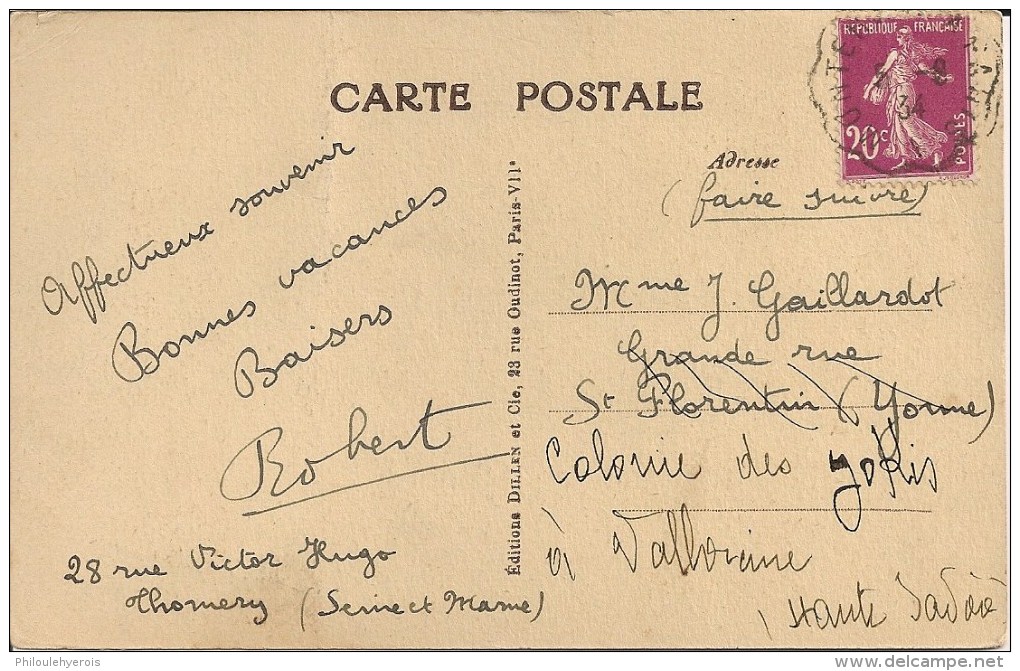 CARTE POSTALE
REPUBLIQUE FRANÇAISE
20c
POSTES
34
Adresse
(faire suivre)
Affectueux souvenir
Bonnes vacances
Baisers
Robert
28 rue Victor Hugo
Thomery (Seine et Marne)
Editions DILLEN et Cie, 23 rue Oudinot, Paris-VIIe
Mme J. Gaillardot
Grande rue
St Florentin (Yonne)
Colonie des
à Vallorcine
(Haute Savoie
Philoulehyerois
www.delcampe.net